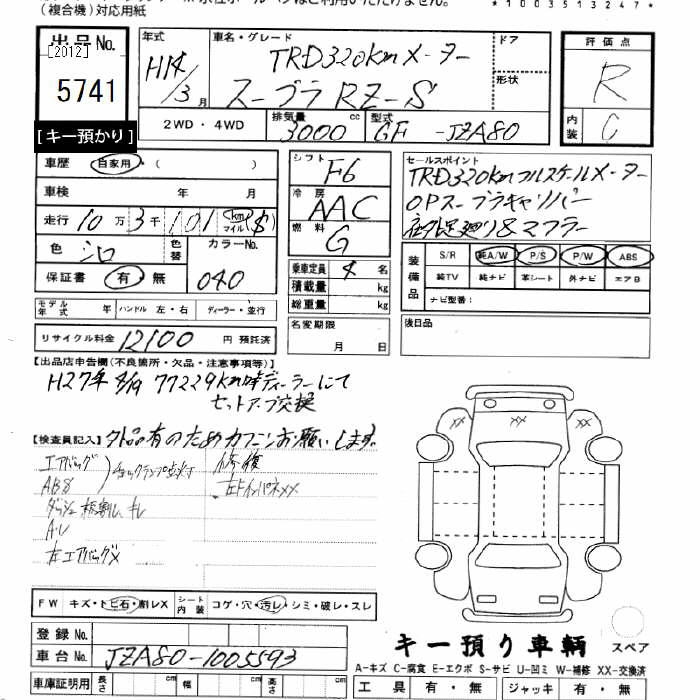 (複合機)対応用紙
*1003513247*
出品No.
[2012]
5741
[キー預かり]
年式
H14年
3月
車名・グレード
TRD320kmメーター
スープラRZ-S
ドア
形状
評価点
R
内装
C
2WD・4WD
排気量
3000
cc
型式
GF -JZA80
車歴
自家用・( )
車検 年 月
走行 10万3千101 km マイル ($)
色 シロ
色替
カラーNo.
040
保証書 有・無
シフト F6
冷房 AAC
燃料 G
乗車定員 4名
積載量 kg
総重量 kg
名変期限
月 日
セールスポイント
TRD320kmフルスケールメーター
OPスープラキャリパー
社外足廻り&マフラー
装備品
S/R 純A/W P/S P/W ABS
純TV 純ナビ 革シート 外ナビ エアB
ナビ型番:
後日品
モデル年式
ハンドル 左・右
ディーラー・並行
リサイクル料金 12100 円 預託済
【出品店申告欄(不良箇所・欠品・注意事項等)】
H27年 8/19 77229km時ディーラーにて
セットアップ交換
【検査員記入】
外品有のためカクニンお願いします。
エアバッグ
ABS
チェックランプ点灯
ダッシュ板割レ、キレ
A・レ
右エアバッグ×
修復
左Fインパネ××
FW キズ・トビ石・割レX
シート内装 コゲ・穴・汚レ・シミ・破レ・スレ
××
××
登録No.
車台No. JZA80-1005593
車庫証明用 長さ cm 幅 cm 高さ cm
キー預り車輌
スペア
A-キズ C-腐食 E-エクボ S-サビ U-凹ミ W-補修 XX-交換済
工具 有・無 ジャッキ 有・無